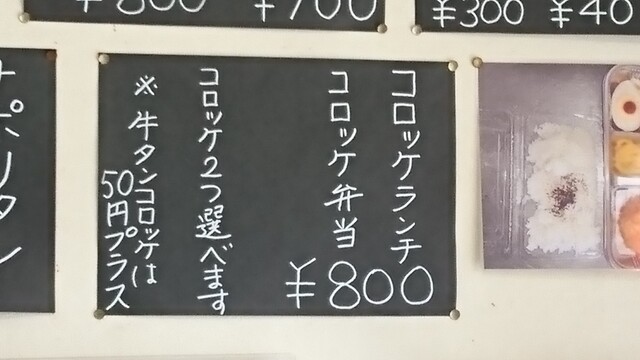 ¥800
¥700
¥300
¥40
コロッケランチ
コロッケ弁当
¥800
コロッケ2つ選べます
※牛タンコロッケは
50円プラス
ポリタン